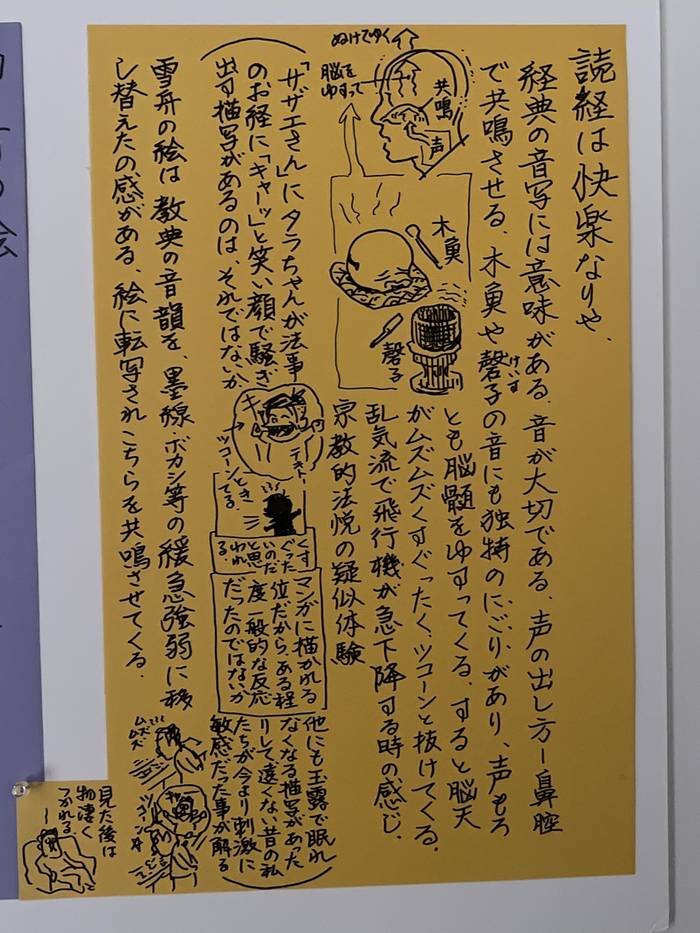 読経は快楽なりや、
経典の音写には意味がある、音が大切である、声の出し方ー鼻腔
で共鳴させる、木魚や磬子の音にも独特のにごりがあり、声もろ
けいす
とも脳髄をゆすってくる、すると脳天
がムズムズくすぐったく、ツコーンと抜けてくる、
乱気流で飛行機が急下降する時の感じ、
宗教的法悦の疑似体験
ぬけてゆく
脳を
ゆすって
共鳴
声
木魚
磬子
(「サザエさん」にタラちゃんが法事
のお経に「キャーッ」と笑い顔で騒ぎ
出す描写があるのは、それではないか
キ
ツコーンとき
てる
くす
ぐった
いのだ
と思
われ
る、
マンガに描かれる
位だから、ある程
度一般的な反応
だったのではないか
他にも玉露で眠れ
なくなる描写があった
りして遠くない昔の私
たちが今より刺激に
敏感だった事が解る)
雪舟の絵は教典の音韻を、墨線・ボカシ等の緩急強弱に移
し替えたの感がある、絵に転写されこちらを共鳴させてくる、
ムズ
ムズ
ツコーン
見た後は
物凄く
つかれる、